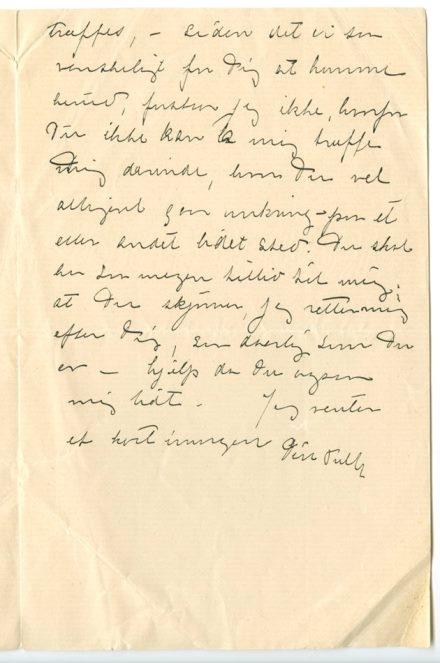 træffes, – siden det er saa
vanskeligt for Dig at komme
herud, forstaar jeg ikke, hvorfor
Du ikke kan la mig træffe
Dig derinde, hvor Du vel
alligevel gaar omkring paa et
eller andet lidet sted. Du skal
ha saa megen tillid til mig,
at Du skjønner, jeg retter mig
efter Dig, saa daarlig som Du
er – hjælp da Du ogsaa
mig lidt – Jeg venter
et kort imorgen Din